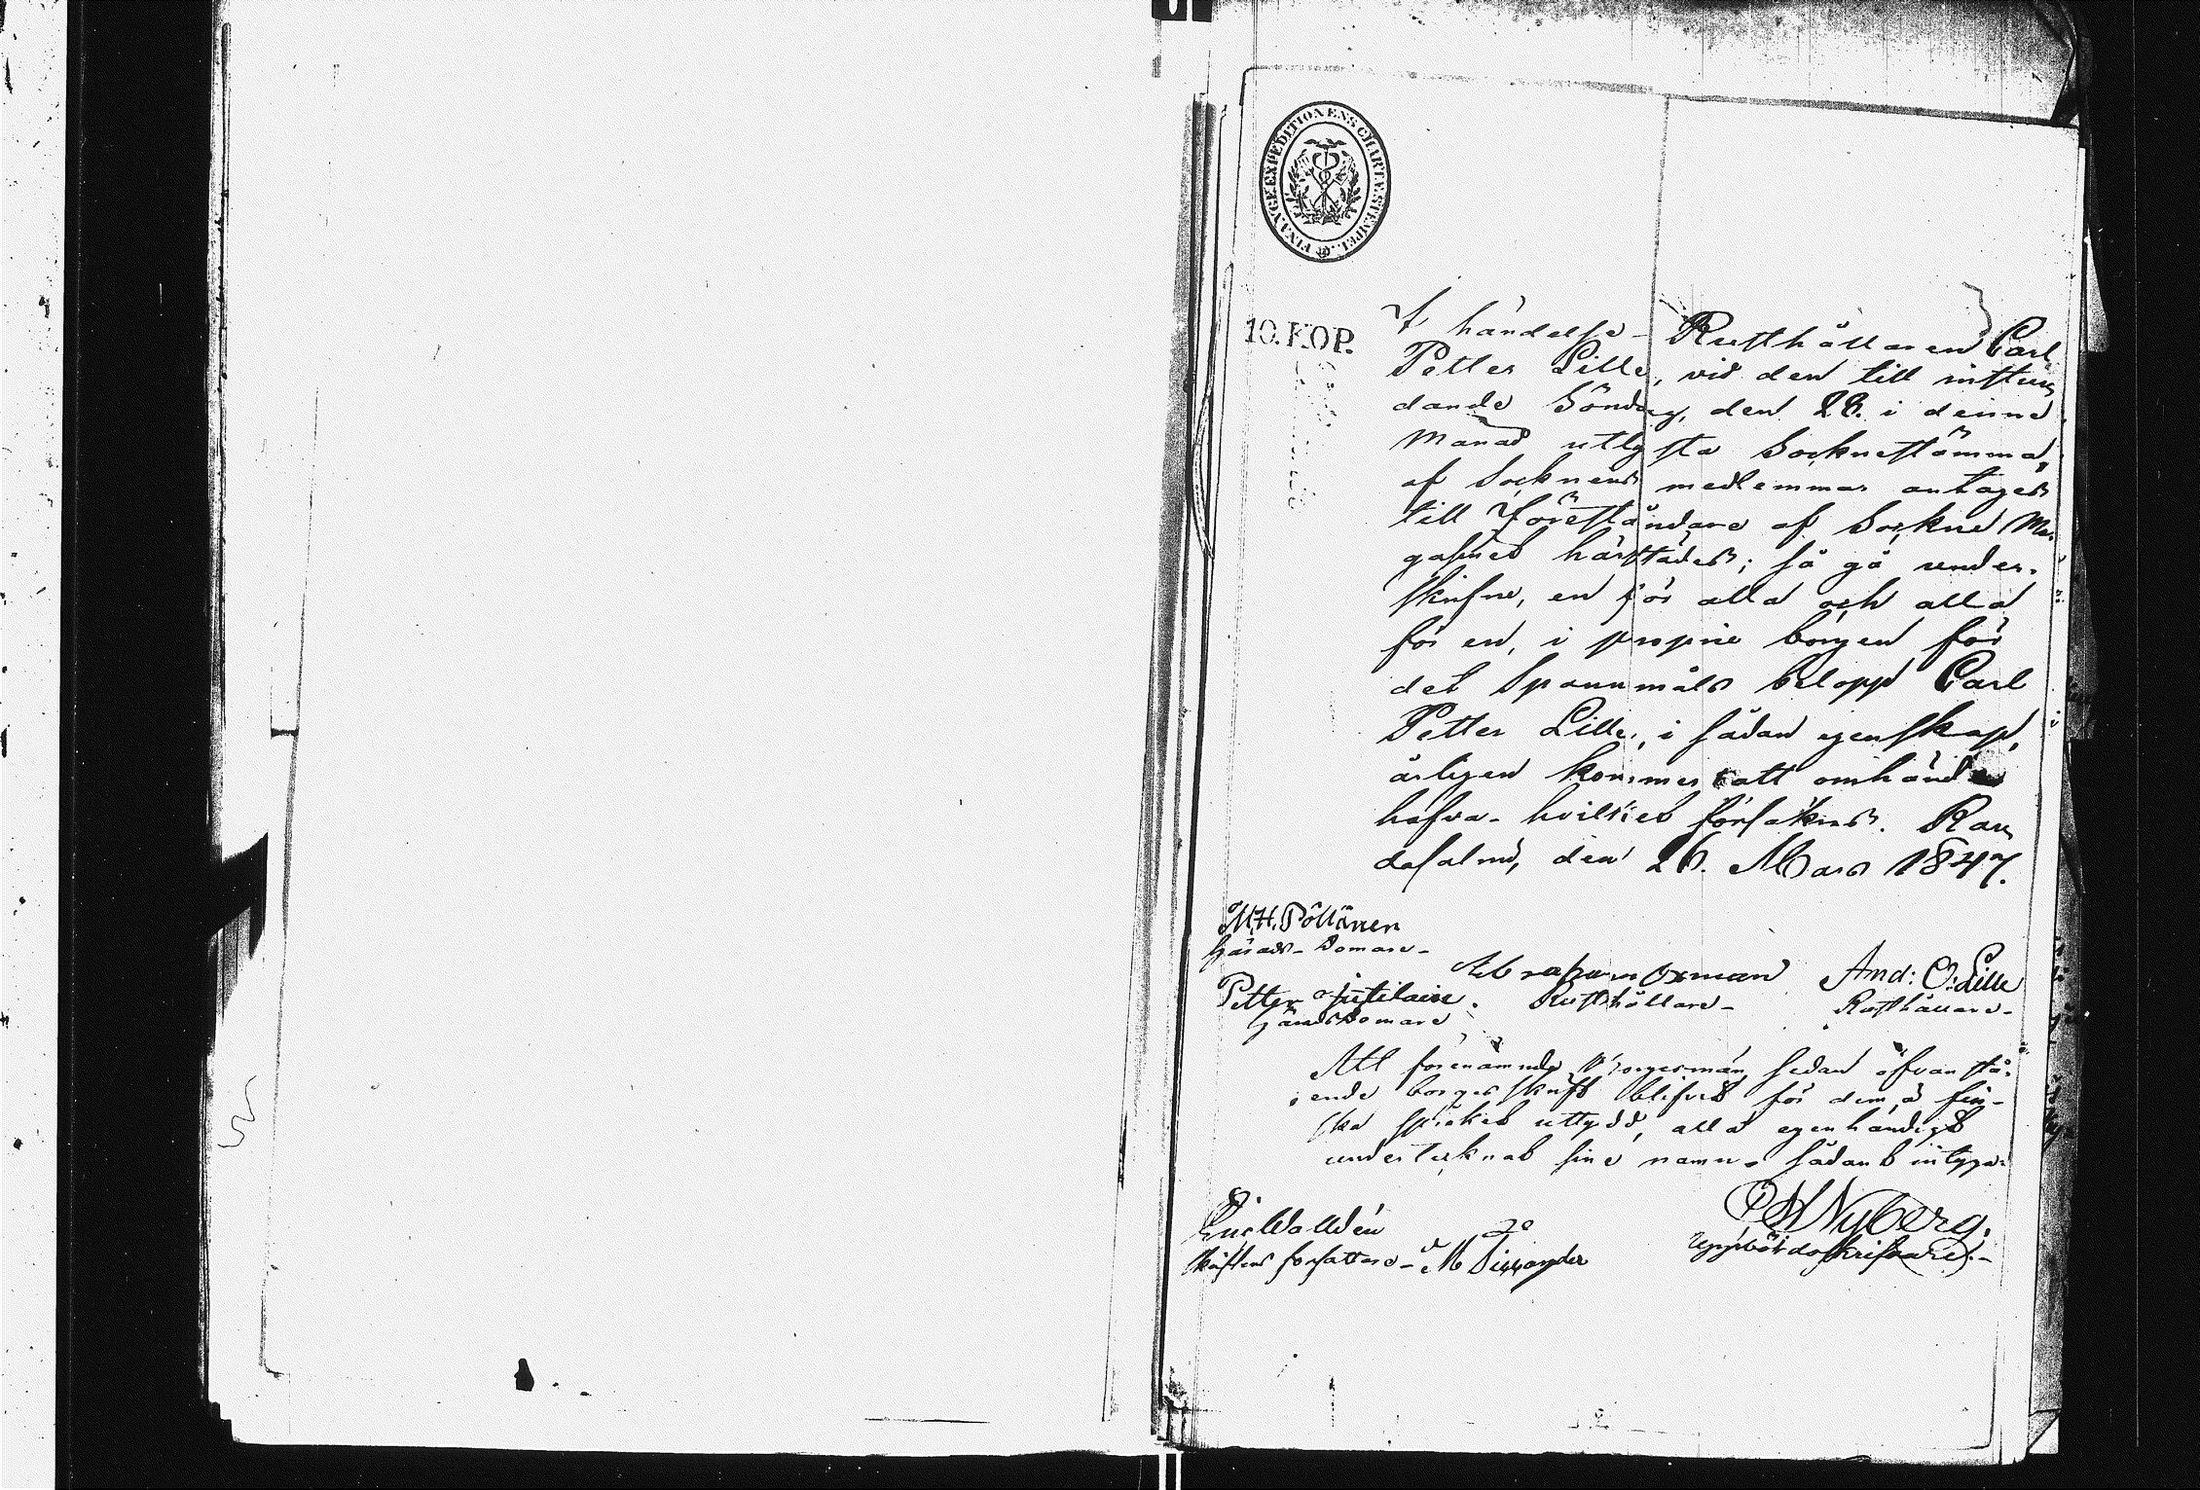 FINANCE EXPEDITIONENS CHARTÆ STEMPEL.
10. KOP.
I händelse Rusthållaren Carl
Petter Lille, vid den till instun
dande Söndag, den 28. i denne
Månad utlysta Sockne stämma,
af Socknens medlemmar antages
till Föreståndare af Sockne Ma-
gasinet härstädes; så gå under-
skrifne, en för alla och alla
för en, i proprie borgen för
det Spannmåls belopp Carl
Petter Lille, i sådan egenskap,
årligen kommer att omhänder
hafva - hvilket försäkras. Ran
dasalmi, den 26. Mars 1847.
M.H. Pöllänen
Härads-Domare-
Petter
HäradsDomare
Abraham Oxman
Rusthållare-
And: O: Lille
Rusthållare-
Att förenämnde Borgesmän, sedan ofvanstå-
ende borgesskrift blifvit för dem, å fin-
ska språket uttydd, alla egenhändigt
undertecknat sine namn, sådant intygar
Eric Walldén
skriftens författare -
M
Nyberg.
Uppbördsskrifvare.-